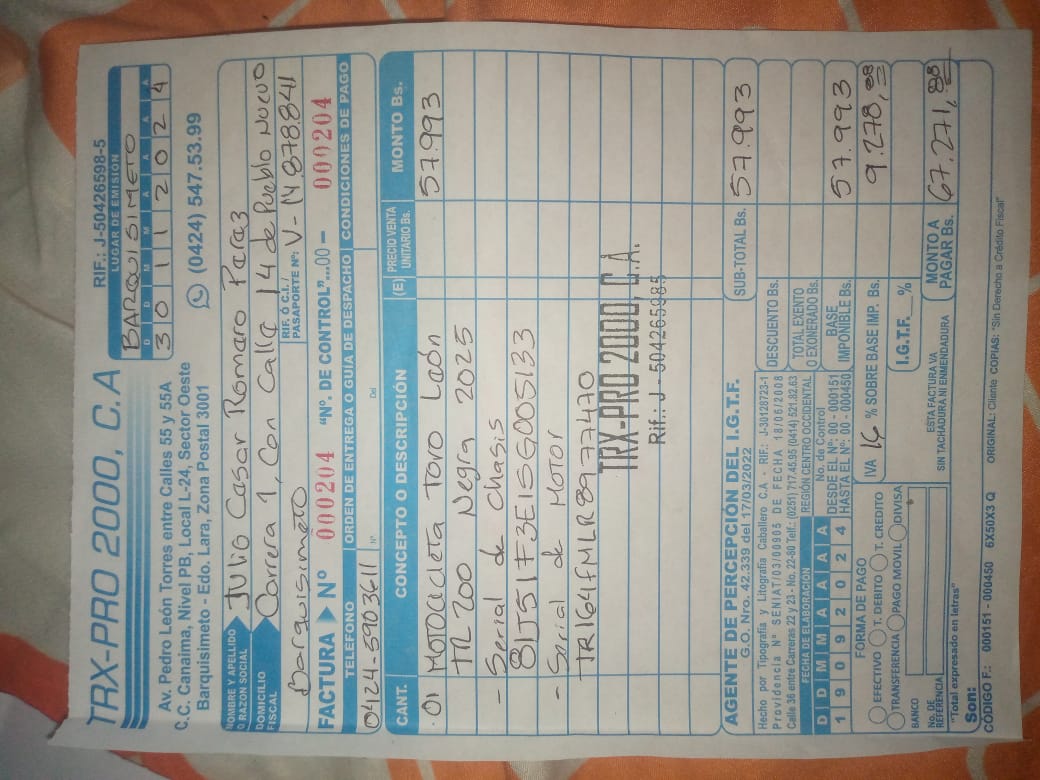 TRX-PRO 2000, C.A
RIF.: J-50426598-5
LUGAR DE EMISIÓN
BARQUISIMETO
D D M M A A A A
3 0 1 1 2 0 2 4
Av. Pedro León Torres entre Calles 55 y 55A
C.C. Canaima, Nivel PB, Local L-24, Sector Oeste
Barquisimeto - Edo. Lara, Zona Postal 3001
(0424) 547.53.99
NOMBRE Y APELLIDO O RAZON SOCIAL Julio Cesar Romero Paraz
DOMICILIO FISCAL Carrera 1, Con Calle 14 de Pueblo Nuevo
Barquisimeto
RIF. Ó C.I. / PASAPORTE Nº: V-14878841
FACTURA Nº 000204 "Nº. DE CONTROL"...00 – 000204
TELEFONO ORDEN DE ENTREGA O GUÍA DE DESPACHO CONDICIONES DE PAGO
0424-5903611 Nº Del
CANT. CONCEPTO O DESCRIPCIÓN (E) PRECIO VENTA UNITARIO Bs. MONTO Bs.
01 Motocicleta Toro León 57.993
TR 200 Negra 2025
- Serial de Chasis
- Serial de Motor
TR164FMLR8977470
TRX-PRO 2000, C.A.
Rif.: J - 504265985
AGENTE DE PERCEPCIÓN DEL I.G.T.F.
G.O. Nro. 42.339 del 17/03/2022
Hecho por Tipografía y Litografía Caballero C.A. RIF.: J-30128723-1
Providencia Nº SENIAT/03/00905 DE FECHA 18/06/2008
Calle 36 entre Carreras 22 y 23 - No. 22-80 Telf.: (0251) 717.45.95 (0414) 521.82.63
FECHA DE ELABORACIÓN
D D M M A A A A
1 9 0 9 2 0 2 4
REGIÓN CENTRO OCCIDENTAL
No. de Control
DESDE EL Nº: 00 - 000151
HASTA EL Nº: 00 - 000450
SUB-TOTAL Bs. 57.993
DESCUENTO Bs.
TOTAL EXENTO O EXONERADO Bs.
BASE IMPONIBLE Bs. 57.993
IVA 16 % SOBRE BASE IMP. Bs. 9.278,88
I.G.T.F. %
MONTO A PAGAR Bs. 67.271,88
FORMA DE PAGO
EFECTIVO T. DEBITO T. CREDITO
TRANSFERENCIA PAGO MOVIL DIVISA
BANCO
No. DE REFERENCIA
ESTA FACTURA VA
SIN TACHADURA NI ENMENDADURA
"Total expresado en letras"
Son:
CÓDIGO F.: 000151 - 000450 6X50X3 Q ORIGINAL: Cliente COPIAS: "Sin Derecho a Crédito Fiscal"